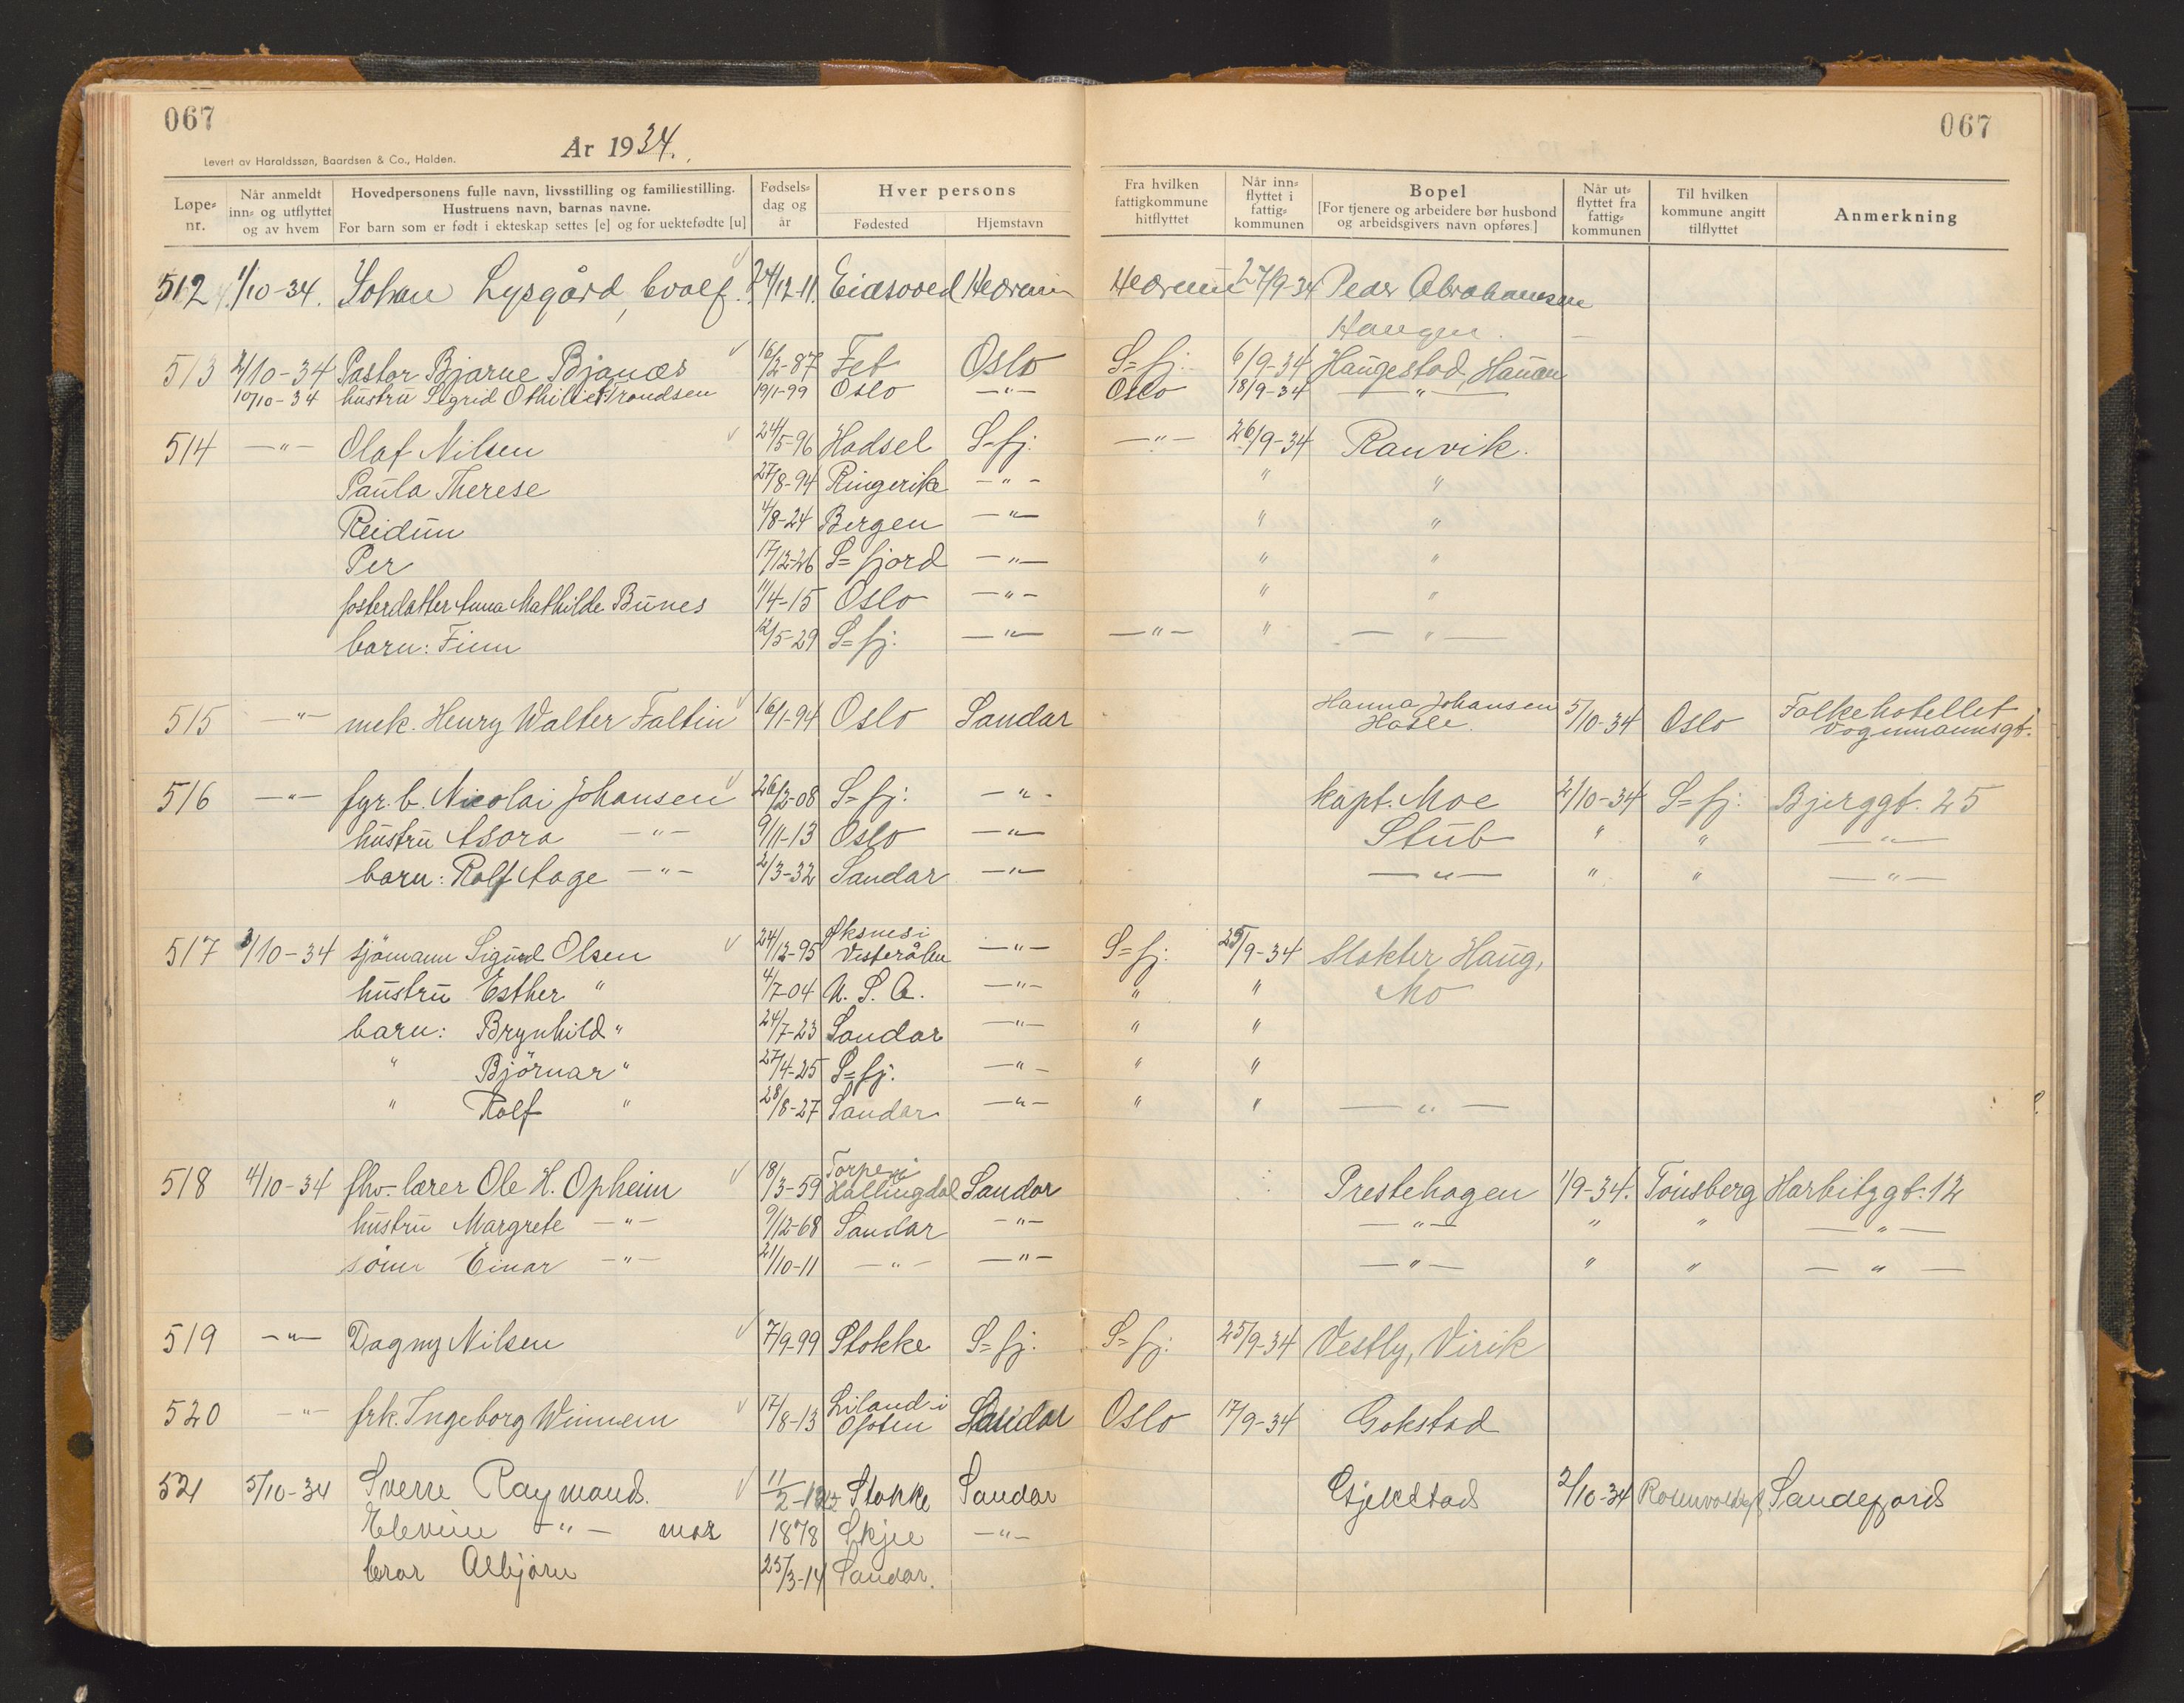 067
Ar 1934.
Levert av Haraldssøn, Baardsen & Co., Halden.
Løpe=nr. Når anmeldt inn= og utflyttet og av hvem Hovedpersonens fulle navn, livsstilling og familiestilling. Hustruens navn, barnas navne. For barn som er født i ekteskap settes [e] og for uektefødte [u] Fødsels=dag og år Hver persons Fødested Hjemstavn
067
Fra hvilken fattigkommune hitflyttet Når inn=flyttet i fattig=kommunen Bopel [For tjenere og arbeidere bør husbond og arbeidsgivers navn opføres] Når ut=flyttet fra fattig=kommunen Til hvilken kommune angitt tilflyttet Anmerkning
512 1/10-34. Johan Lysgård, 24/12-11. Eidsvoed Hedrum Hedrum 27/9-34 Peder Abrahamsen
Haugen.
513 2/10-34 Pastor Bjarne Bjanæs 16/2-87 Fet Oslo S=fj: 6/9-34 Haugestad, Hauan
10/10-34 hustru Sigrid Othilie Trondsen 19/1-99 Oslo —"— Oslo 18/9-34 —"—
514 —"— Olaf Nilsen 24/5-96 Hadsel S=fj: —"— 26/9-34 Ranvik.
Paula Therese 27/8-94 Ringerike —"— " "
Reidun 4/8-24 Bergen —"— " "
Per 17/12-26 S=fjord —"— " "
fosterdatter Anna Mathilde Bunes 11/4-15 Oslo —"— " "
barn: Finn 12/5-29 S=fj: —"— —"— " —"—
515 —"— mek. Henry Walter Faltin 16/1-94 Oslo Sandar Hanna Johansen Hasle. 5/10-34 Oslo Folkehotellet Vognmannsgt.
516 —"— fyr.b. Nicolai Johansen 26/2-08 S=fj: —"— kapt. Moe 2/10-34 S=fj: Bjerggt. 25
hustru Asora —"— 9/11-13 Oslo —"— Stub " " —"—
barn: Rolf Aage —"— 2/3-32 Sandar —"— —"— " " —"—
517 3/10-34 sjömann Sigurd Olsen 24/12-95 Øksnes i Vesterålen —"— S=fj: 25/9-34 slakter Haug,
hustru Esther " 4/7-04 U.S.A. —"— " " Mo
barn: Brynhild " 24/7-23 Sandar —"— " "
" Björnar " 27/4-25 S=fj. —"— " "
" Rolf " 28/8-27 Sandar —"— " " —"—
518 4/10-34 fhv. lærer Ole H. Opheim 18/3-59 Torpe i Hallingdal Sandar Prestehagen 1/9-34. Tönsberg Harbitzgt. 12
hustru Margrete —"— 9/12-68 Sandar —"— —"— " " —"—
sönn Einar —"— 21/10-11 —"— —"— —"— " " —"—
519 —"— Dagny Nilsen 7/9-99 Stokke S=fj: S=fj: 25/9-34 Vestly, Virik
520 —"— frk. Ingeborg Winnem 17/8-13 Liland i Ofoten Sandar Oslo 17/9-34 Gokstad
521 5/10-34 Sverre Raymond. 11/2-12 Stokke Sandar Gjekstad 2/10-34 Sandefjord
—"— mor 1878 Skjee —"—
bror Asbjörn 25/3-14 Sandar.